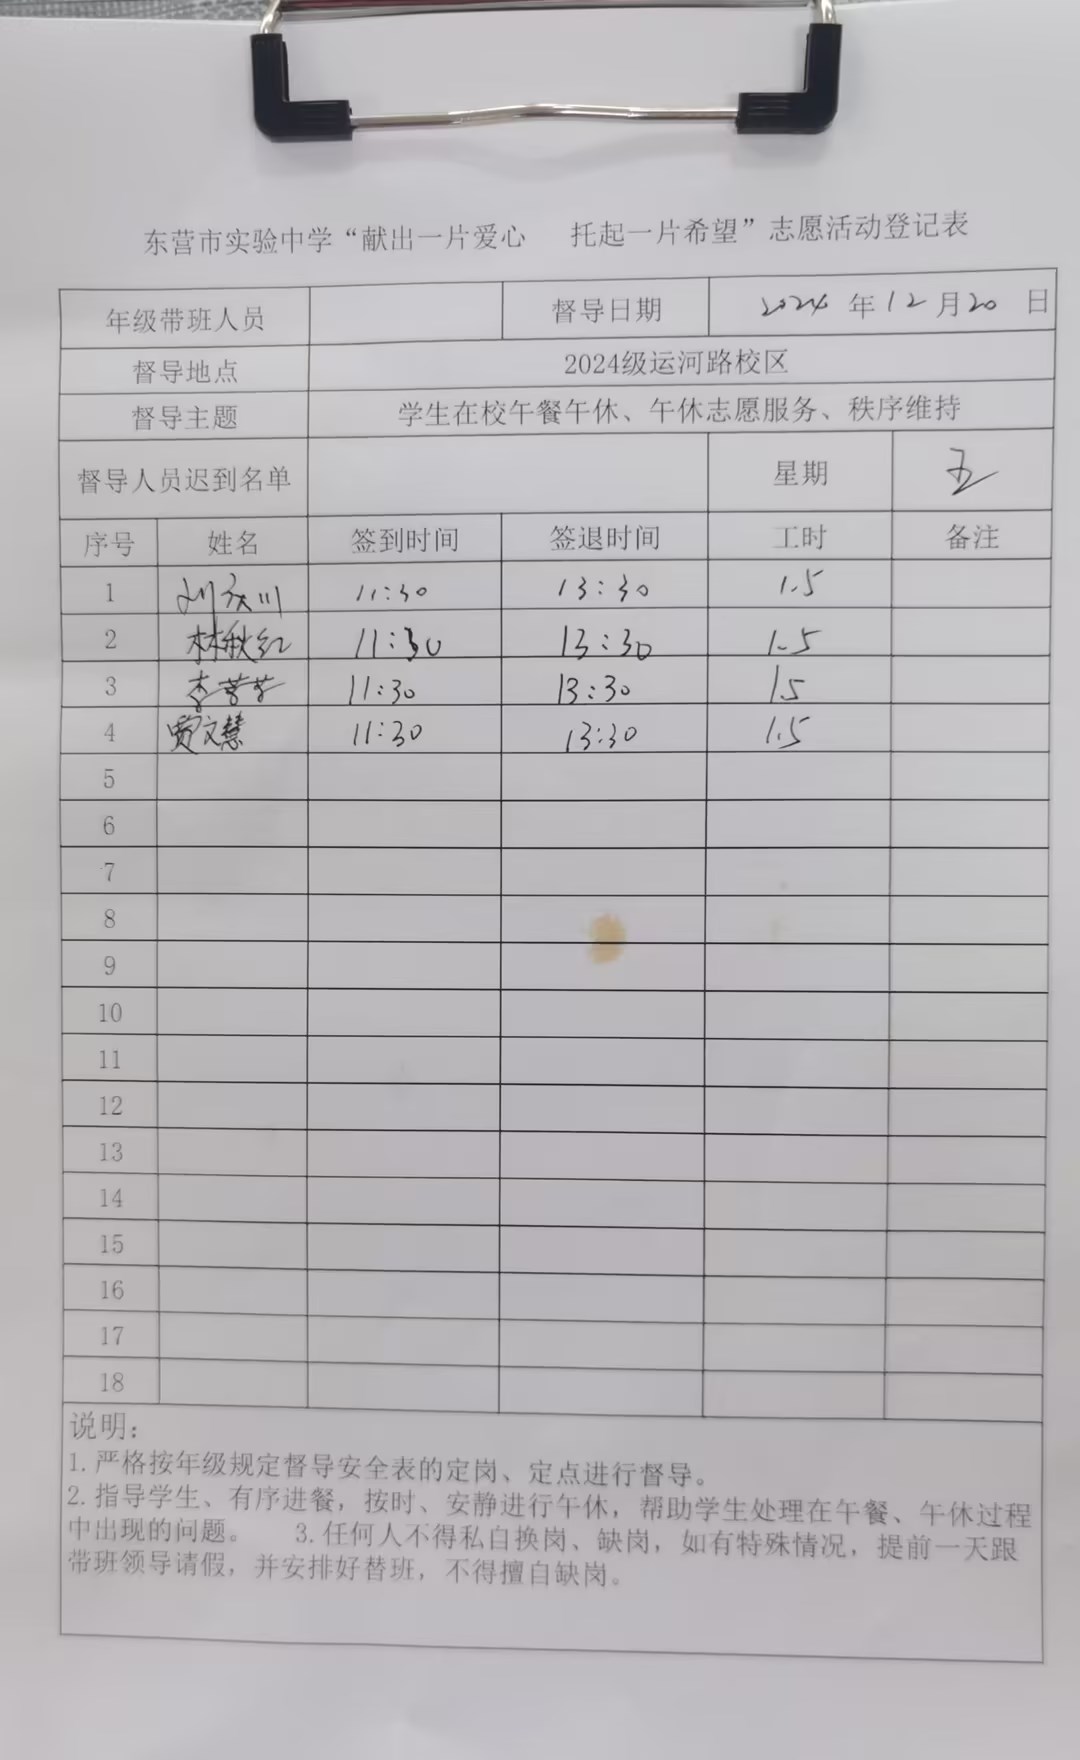 东营市实验中学“献出一片爱心 托起一片希望”志愿活动登记表
年级带班人员 督导日期 2024 年 12 月 20 日
督导地点 2024级运河路校区
督导主题 学生在校午餐午休、午休志愿服务、秩序维持
督导人员迟到名单 星期 五
序号 姓名 签到时间 签退时间 工时 备注
1 11:30 13:30 1.5
2 林秋红 11:30 13:30 1.5
3 李芳芳 11:30 13:30 1.5
4 贾文慧 11:30 13:30 1.5
5
6
7
8
9
10
11
12
13
14
15
16
17
18
说明:
1.严格按年级规定督导安全表的定岗、定点进行督导。
2.指导学生、有序进餐，按时、安静进行午休，帮助学生处理在午餐、午休过程
中出现的问题。 3.任何人不得私自换岗、缺岗，如有特殊情况，提前一天跟
带班领导请假，并安排好替班，不得擅自缺岗。